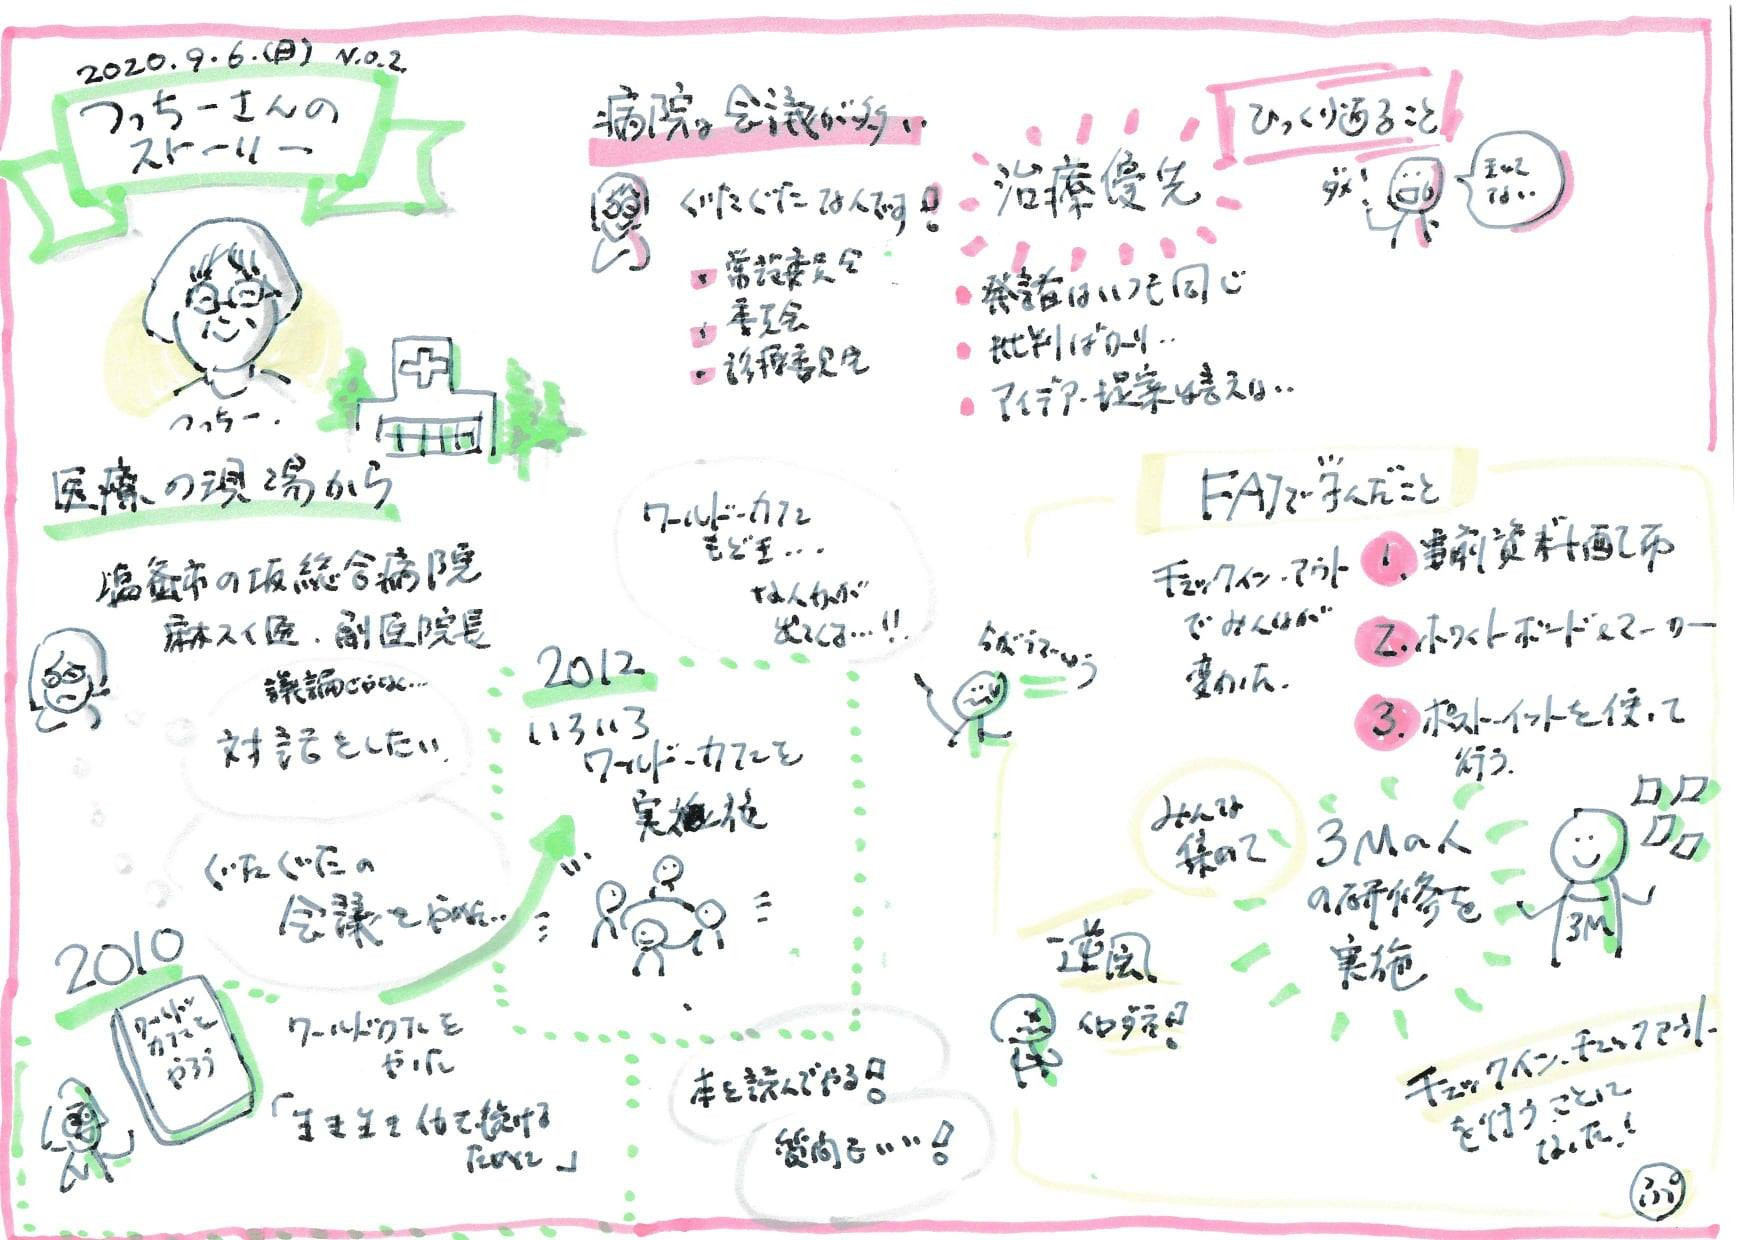 2020.9.6.(日) N.O.2
つっちーさんの
ストーリー
つっちー.
医療の現場から
塩釜市の坂総合病院
麻スイ医.副医院長
議論じゃなく...
対話をしたい
ぐだぐだの
会議をやめた..
2010
ワールド
カフェを
やろう
ワールドカフェを
やった
「生き生き働き続ける
ために」
2012
いろいろ
ワールド・カフェを
実施
ワールド・カフェ
もどき...
なんかが
出てくる...!!
本を読んでやる!
質問もいい!
病院は会議が多い
ぐだぐだなんです!
常設委員会
委員会
診療委員会
治療優先
ひっくり返ること
ダメ!
きいて
ない..
発言者はいつも同じ
批判ばかり..
アイデア・提案は言えない..
FAJで学んだこと
チェックイン・アウト
でみんなが
変わった.
1. 事前資料配布
2. ホワイトボード&マーカー
3. ポストイットを使って
行う.
みんな
集めて
3Mの人
の研修を
実施
3M
逆風
イロダラ!
チェックイン・チェックアウト
を行うことに
なった!
ぷ